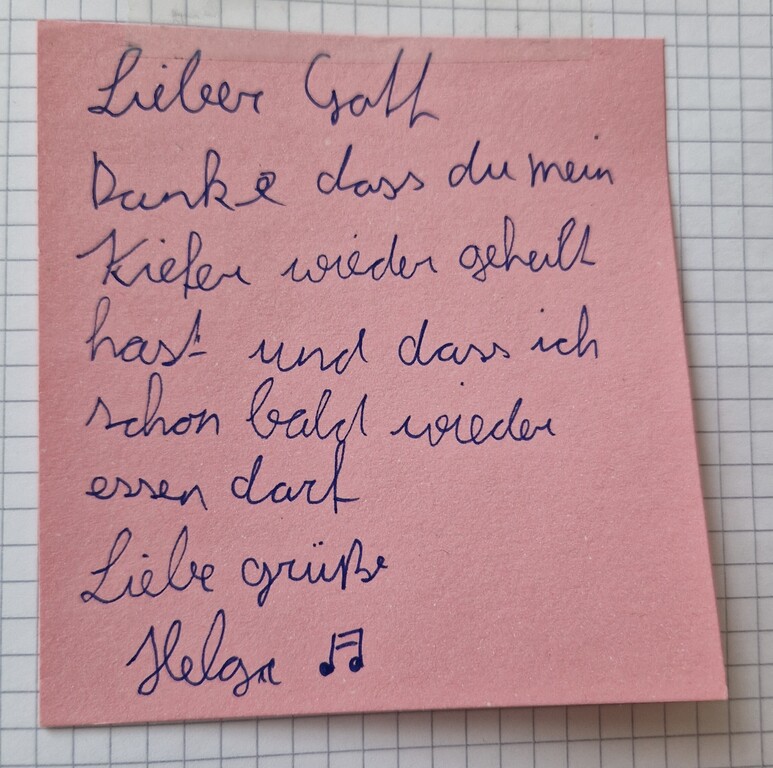 Lieber Gott
Danke dass du mein
Kiefer wieder geheilt
hast und dass ich
schon bald wieder
essen darf
Liebe grüße
Helga ♫